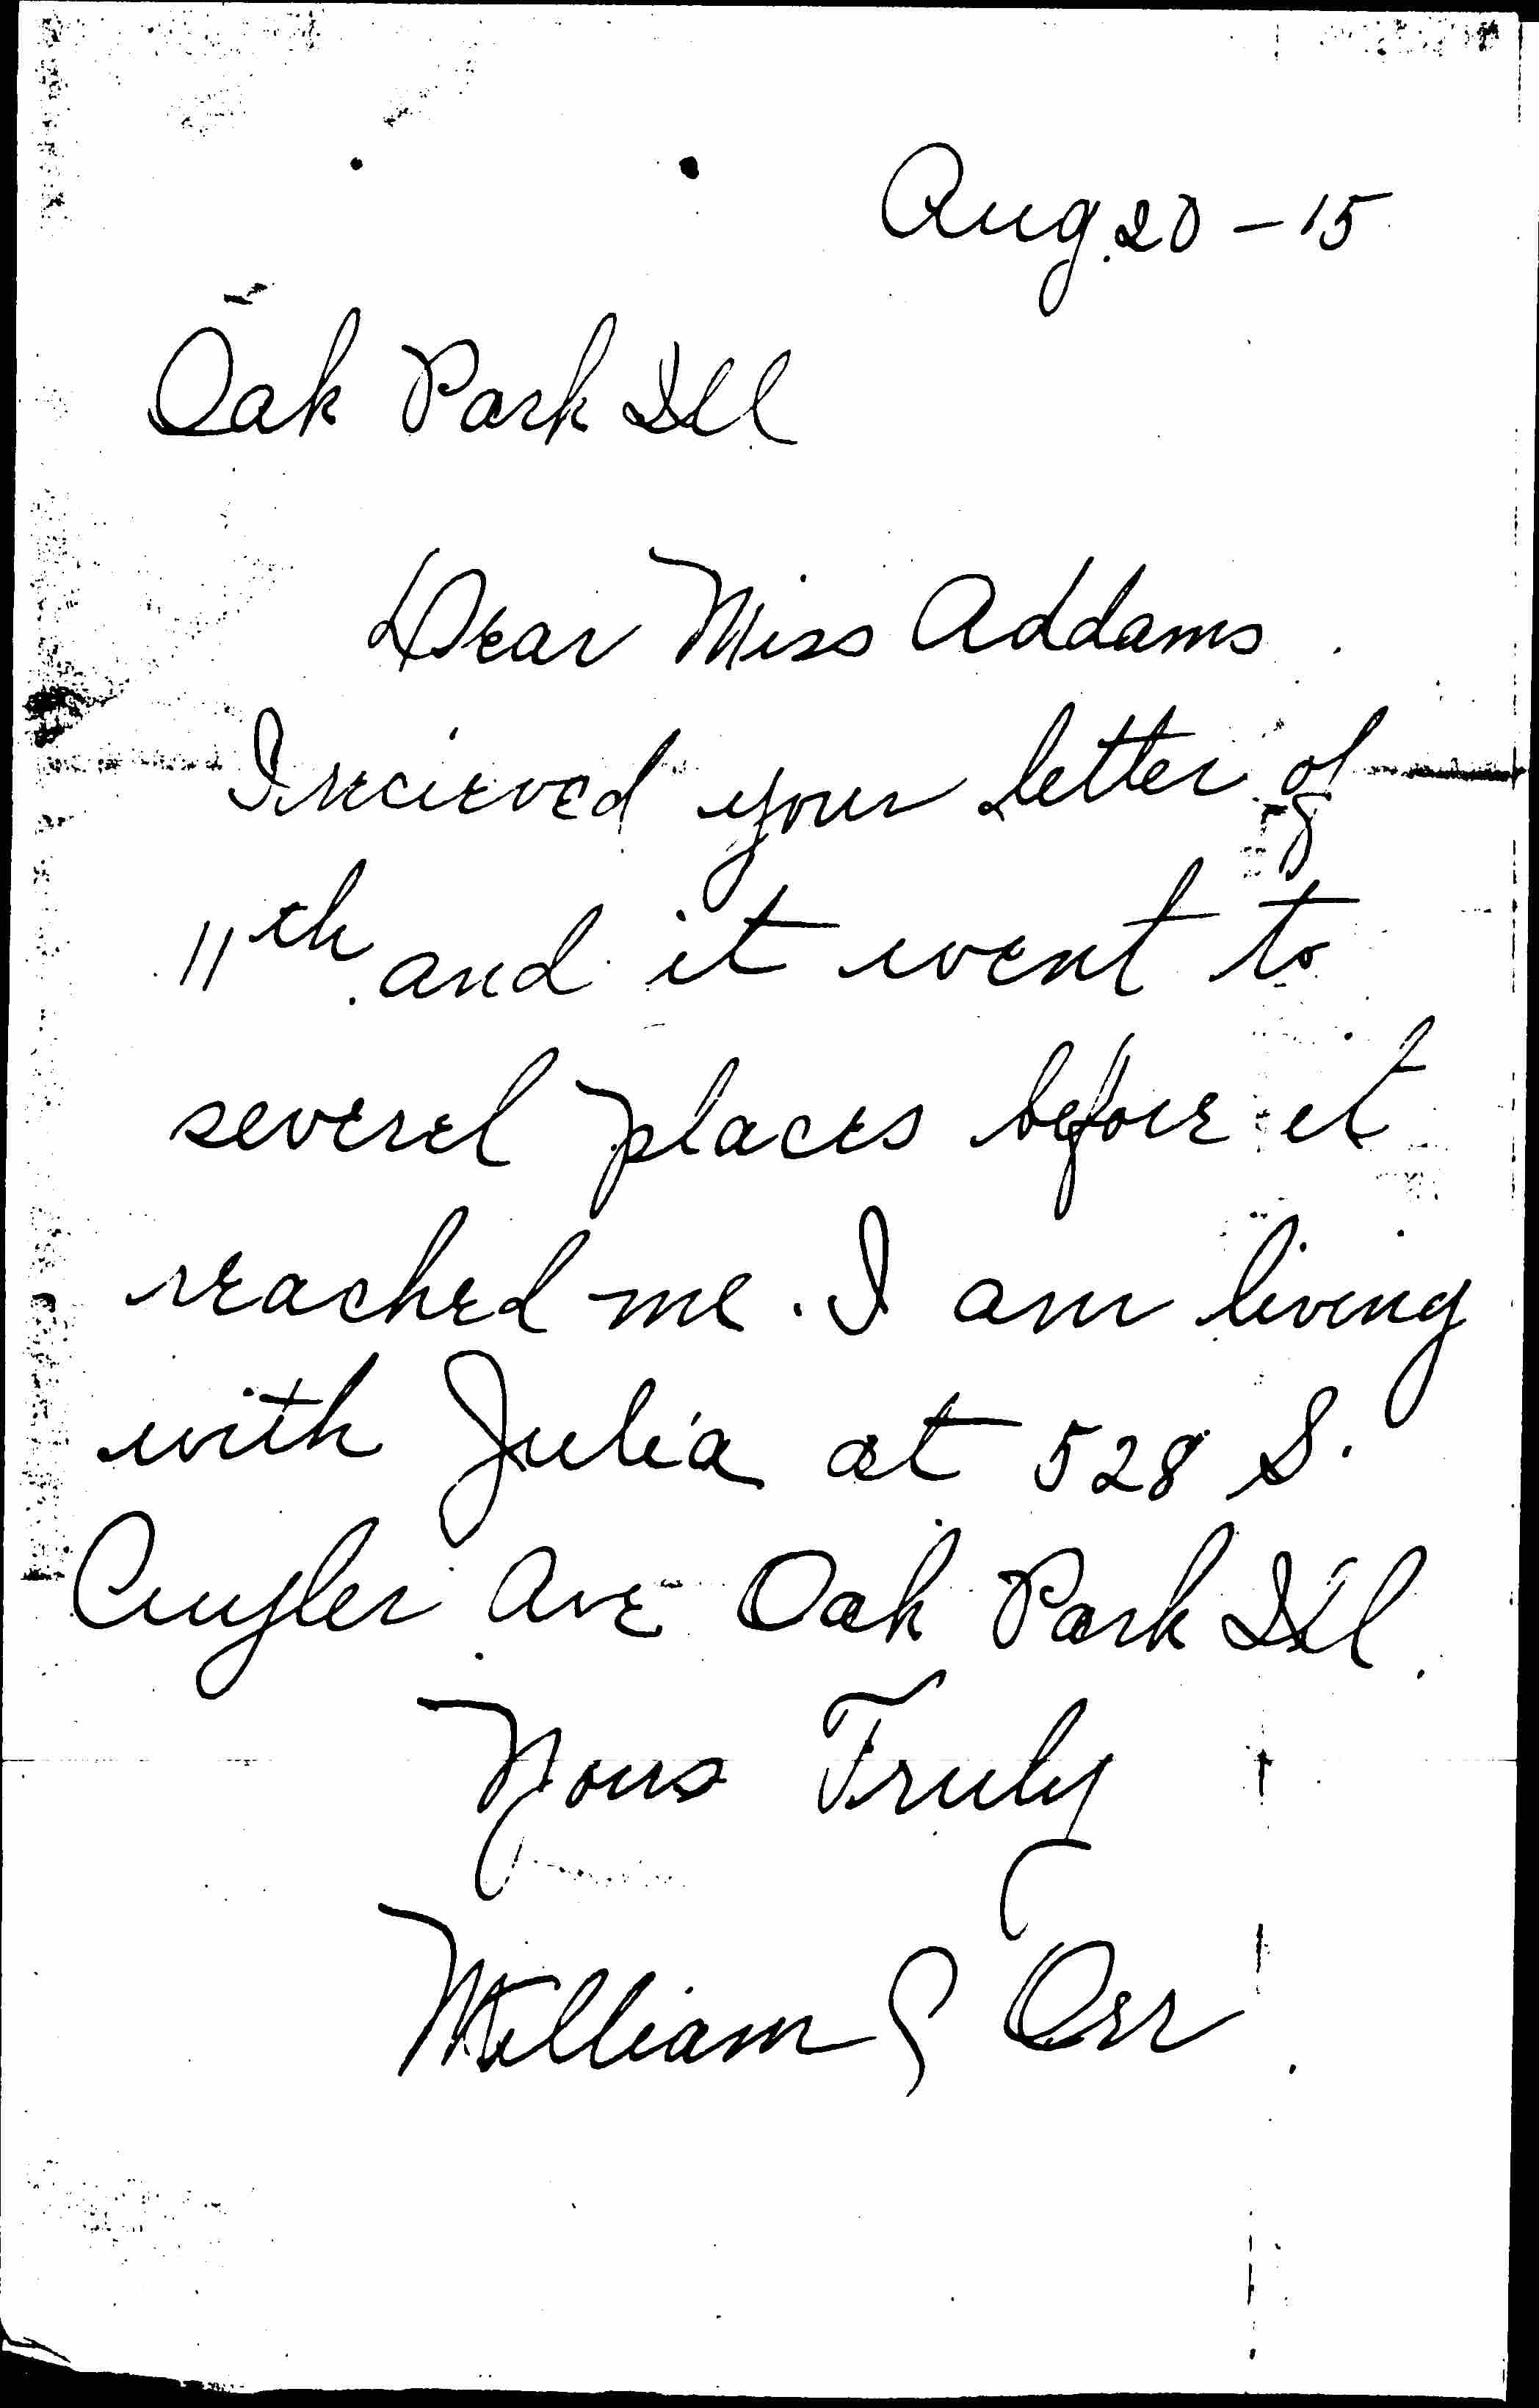 Aug. 20 - 15
Oak Park Ill
Dear Miss Addams
I recieved your letter of
11th and it went to
severel places before it
reached me. I am living
with Julia at 528 S.
Cuyler Ave Oak Park Ill.
Yours Truly
William S Orr